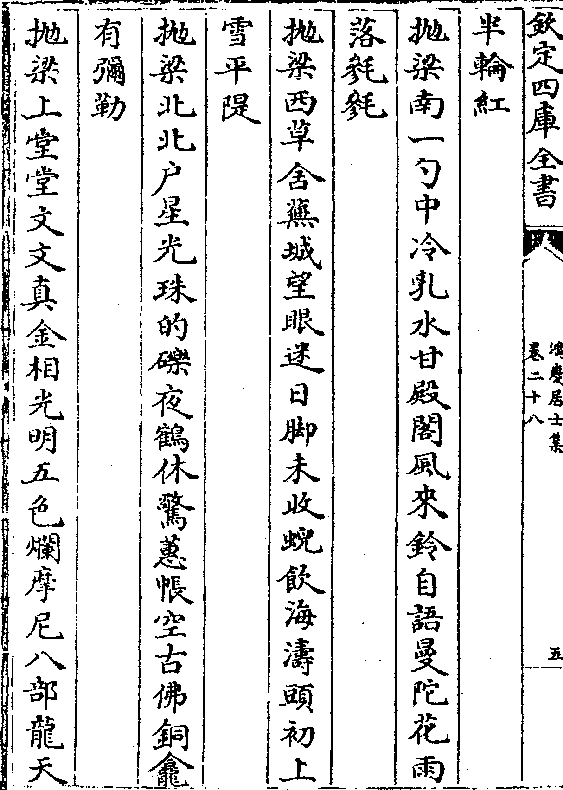 欽定四庫全書
鴻慶居士集
卷二十八
五
半輪紅
抛梁南一勺中冷乳水甘殿閣風來鈴自語曼陀花雨
落毿毿
抛梁西草舍蕪城望眼迷日脚未收蜺飲海濤頭初上
雪平隄
抛梁北北户星光珠的礫夜鶴休驚蕙帳空古佛銅龕
有彌勒
抛梁上堂堂文文真金相光明五色爛摩尼八部龍天